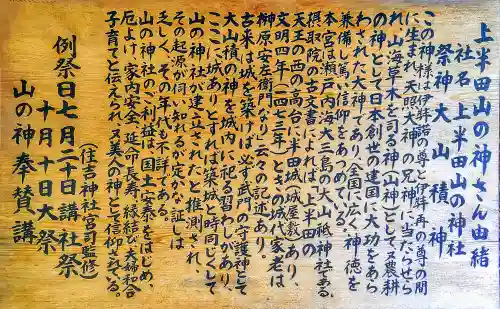 上半田山の神さん由緒
社名 上半田山の神社
祭神 大山積神
この神様は伊弉諾の尊と伊弉再の尊の間
に生まれ、天照大神の兄神に当たらせら
れ、山海草木を司る神(山神)として又農耕
の神として日本創世の建国に大功をあら
わされた大神であり、全国に広く神徳を
兼備し篤い信仰をあつめている。
本宮は瀬戸内海大三島の大山祇神社である。
摂取院の古文書によれば、上半田の
天王の西の高台に半田城(城屋敷)あり、
文明四年(一四七三年)、この城代家老は
榊原安左衛門なり云々の記述あり。
古来は城を築けば必ず武門の守護神として
大山積の神を城内に祀る習わしがあり、
ここに城ありとすれば築城と時同じくして
山の神社が建立されたと推測され、
その起源が伺い知れるが定かな証しは
乏しく、その年代も不詳である。
山の神社のご利益は、国土の安泰をはじめ、
厄よけ、家内安全、延命長寿、縁結び、夫婦和合
子育てと伝えられ、又美人の神として信仰されてる。
(住吉神社宮司監修)
例祭日 七月二十日講社祭
十月十日大祭
山の神奉賛講